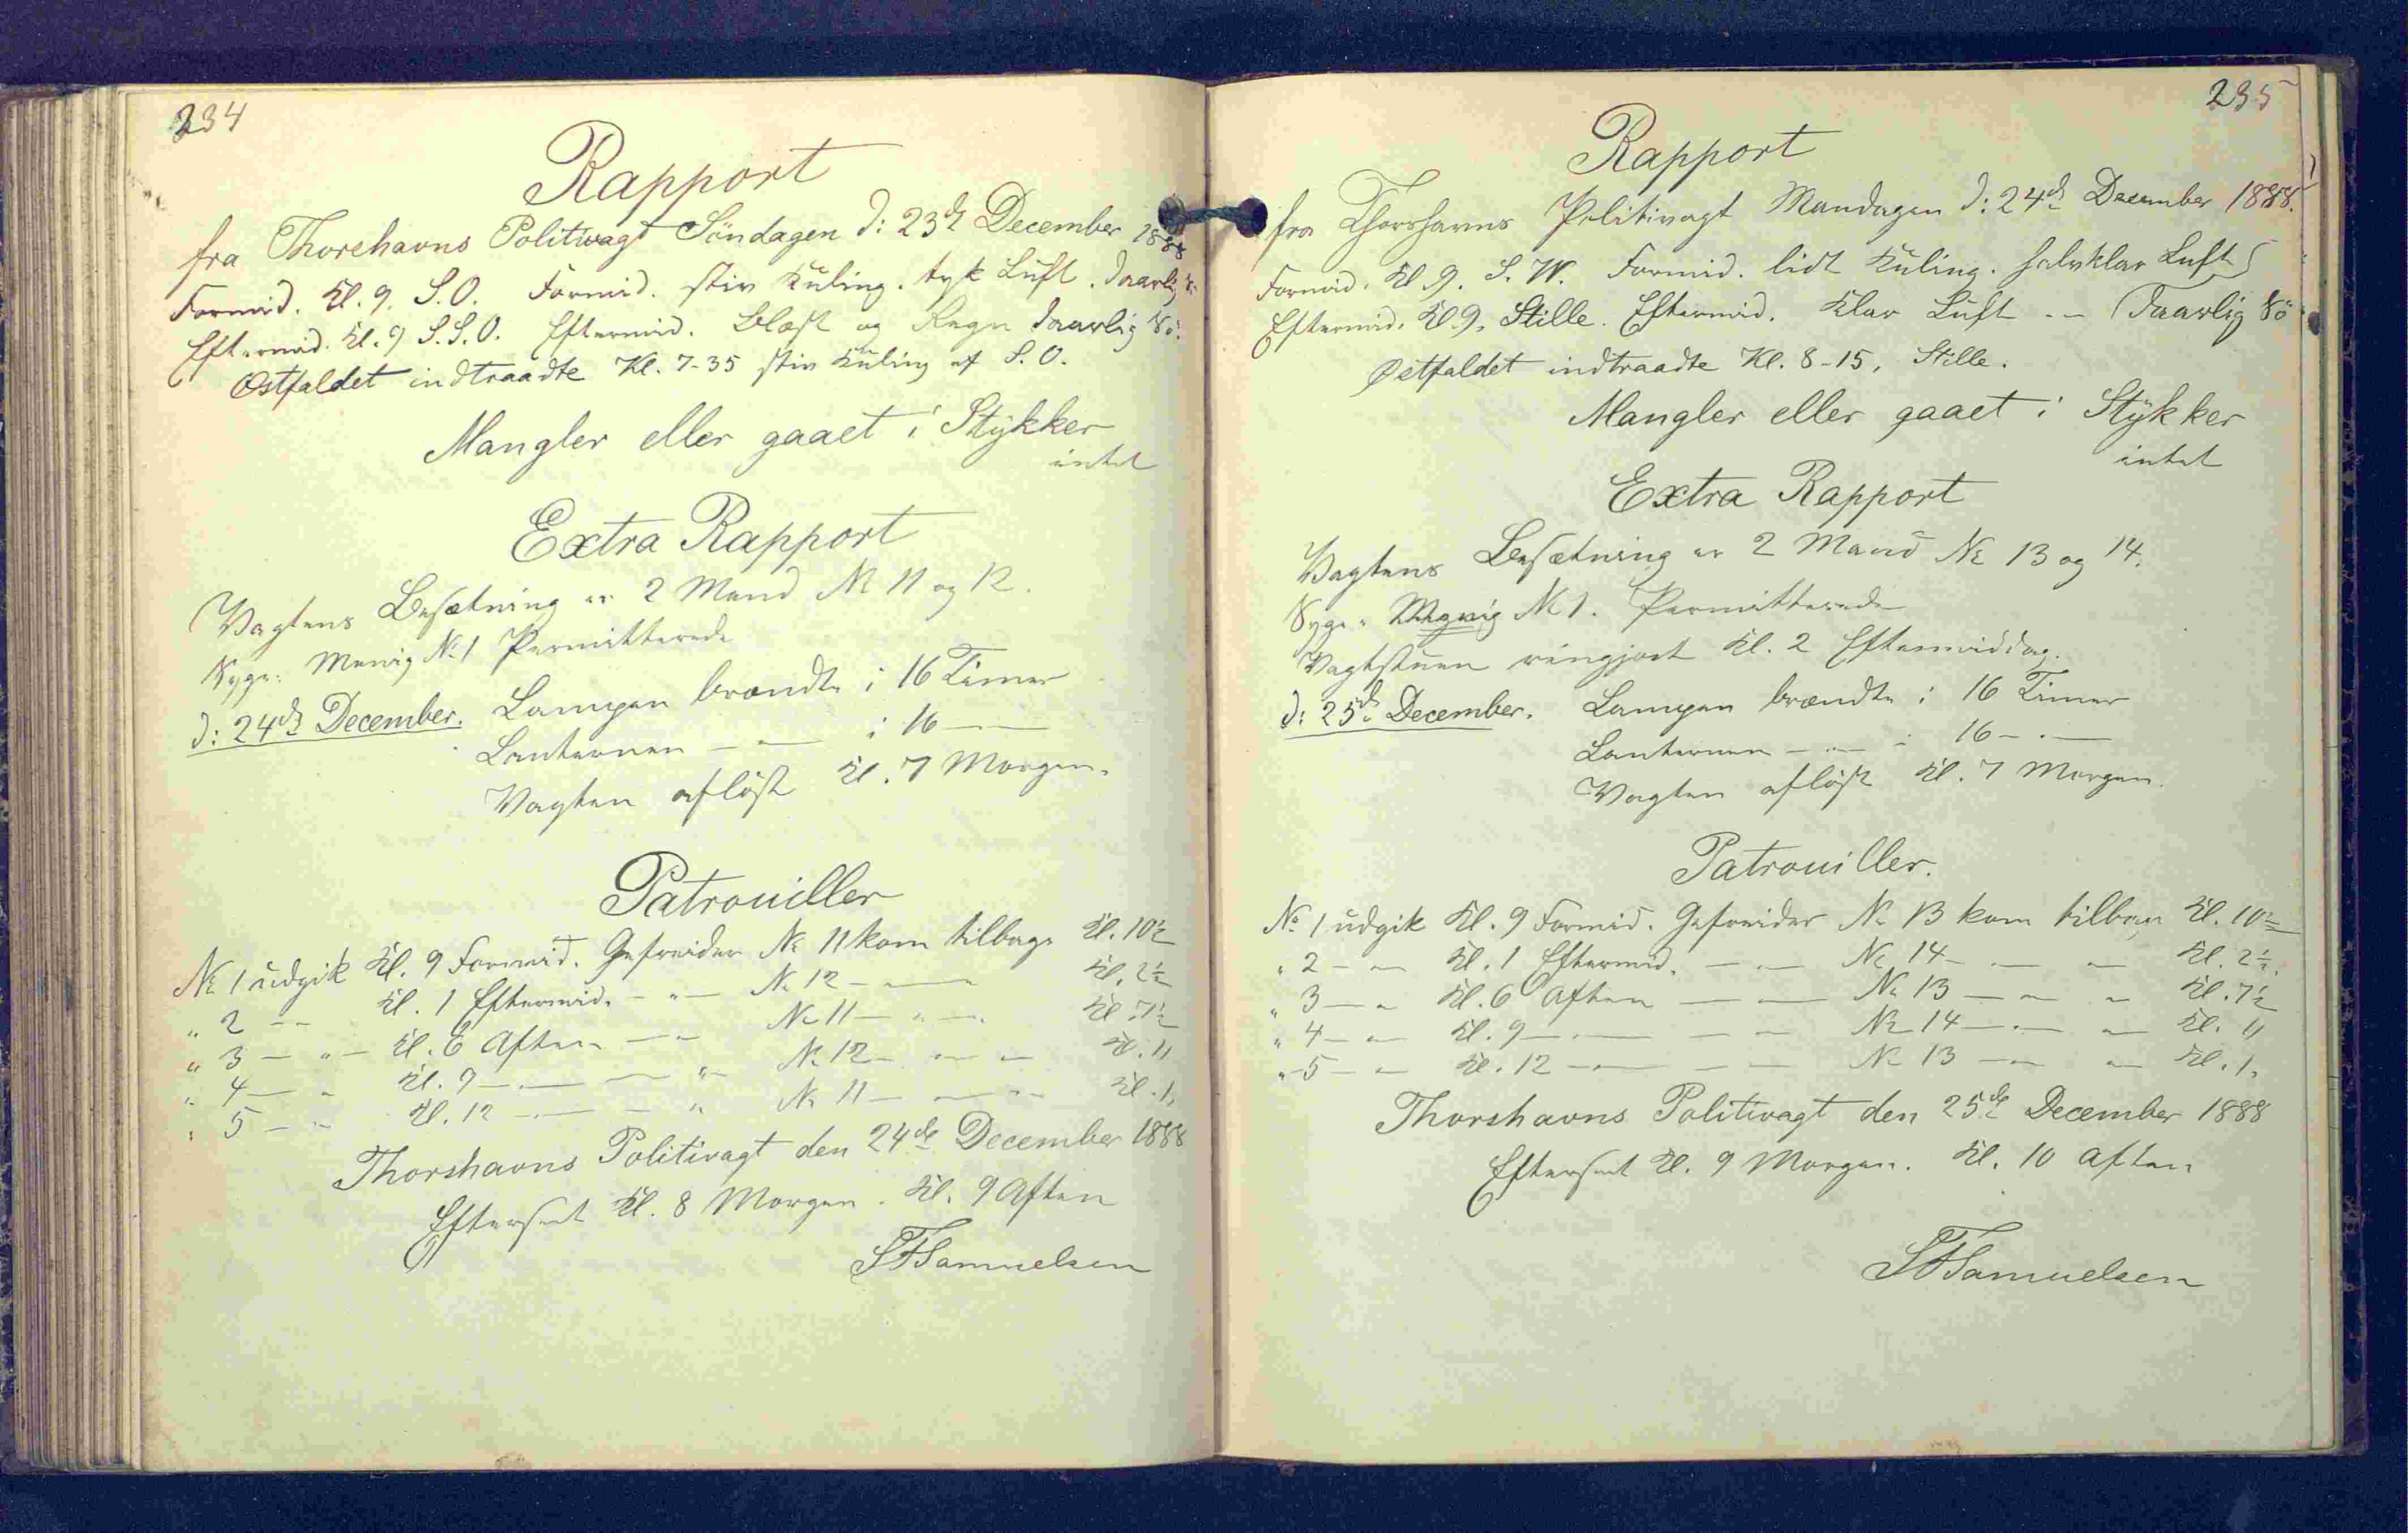 234
Rapport
fra Thorshavns Politivagt Söndagen d: 23de December 1888
Formid. Kl. 9. S.O. Formid. stiv Kuling. tyk Luft. daarlig Sö.
Eftermid. Kl. 9 S.S.O. Eftermid. Blæst og Regn daarlig Sö.
Østfaldet indtraadte Kl. 7-35 stiv Kuling af S.O.
Mangler eller gaaet i Stykker
intet
Extra Rapport
Vagtens Besætning er 2 Mand No 11 og 12.
Syge: Menig No 1 Permitterede
d: 24de December. Lampen brændte i 16 Timer
Lanternen — " — i 16 —
Vagten aflöst Kl. 7 Morgen.
Patrouiller
No 1 udgik Kl. 9 Formid. Gefreider No 11 kom tilbage Kl. 10½
" 2 — " Kl. 1 Eftermid. — " — No 12 — " — Kl. 2½
" 3 — " — Kl. 6 Aften — " No 11 — " — Kl. 7½
" 4 — " Kl. 9 — " — " No 12 — " — Kl. 11
" 5 — " Kl. 12 — " — " No 11 — " — Kl. 1.
Thorshavns Politivagt den 24de December 1888
Efterseet Kl. 8 Morgen. Kl. 9 Aften
SFSamuelsen
235
Rapport
fra Thorshavns Politivagt Mandagen d: 24de December 1888.
Formid. Kl. 9. S.W. Formid. lidt Kuling. halvklar Luft
Eftermid. Kl. 9. Stille. Eftermid. Klar Luft -- Daarlig Sö
Østfaldet indtraadte Kl. 8-15, Stille.
Mangler eller gaaet i Stykker
intet
Extra Rapport
Vagtens Besætning er 2 Mand No 13 og 14.
Syge: Menig No 1. Permitterede
Vagtstuen rengjort Kl. 2 Eftermiddag.
d: 25de December. Lampen brændte i 16 Timer
Lanternen — " — i 16 — " —
Vagten aflöst Kl. 7 Morgen.
Patrouiller.
No 1 udgik Kl. 9 Formid. Gefreider No 13 kom tilbage Kl. 10½
" 2 — " Kl. 1 Eftermid. — " — No 14 — " — " Kl. 2½.
" 3 — " Kl. 6 Aften — " — No 13 — " — " Kl. 7½
" 4 — " Kl. 9 — " — " No 14 — " — " Kl. 11
" 5 — " Kl. 12 — " — " No 13 — " — " Kl. 1.
Thorshavns Politivagt den 25de December 1888
Efterseet Kl. 9 Morgen. Kl. 10 Aften
SFSamuelsen